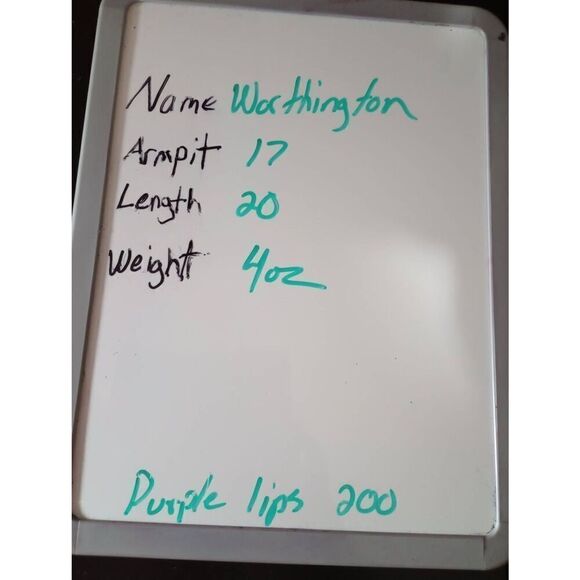 Name Worthington
Armpit 17
Length 20
Weight 4oz
Purple lips 200